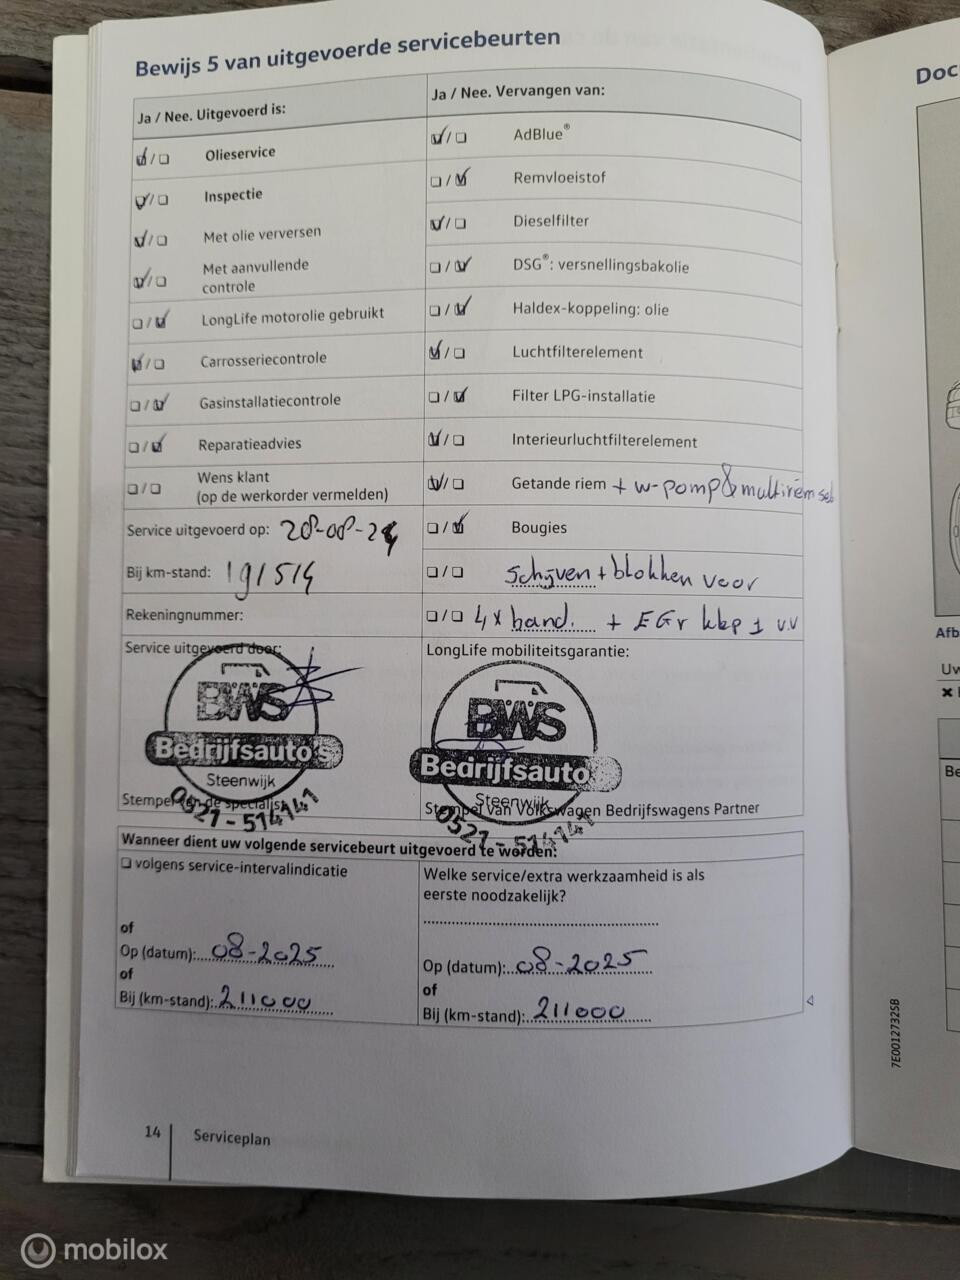 Bewijs 5 van uitgevoerde servicebeurten
Ja / Nee. Uitgevoerd is:
Olieservice
Inspectie
Met olie verversen
Met aanvullende
controle
LongLife motorolie gebruikt
Carrosseriecontrole
Gasinstallatiecontrole
Reparatieadvies
Wens klant
(op de werkorder vermelden)
Service uitgevoerd op: 28-08-24
Bij km-stand: 191514
Rekeningnummer:
Service uitgevoerd door:
BWS
Bedrijfsauto's
Steenwijk
0521-514141
Stempel van de specialist
Ja / Nee. Vervangen van:
AdBlue®
Remvloeistof
Dieselfilter
DSG®: versnellingsbakolie
Haldex-koppeling: olie
Luchtfilterelement
Filter LPG-installatie
Interieurluchtfilterelement
Getande riem + w-pomp & multiriem set
Bougies
schijven + blokken voor
4x band. + EGr klep 1 v.v
LongLife mobiliteitsgarantie:
BWS
Bedrijfsauto
Steenwijk
0521-514141
Stempel van Volkswagen Bedrijfswagens Partner
Wanneer dient uw volgende servicebeurt uitgevoerd te worden:
volgens service-intervalindicatie
of
Op (datum): 08-2025
of
Bij (km-stand): 211000
Welke service/extra werkzaamheid is als
eerste noodzakelijk?
Op (datum): 08-2025
of
Bij (km-stand): 211000
14
Serviceplan
7E0012732SB
Doc
Afb
Uw
Be
mobilox